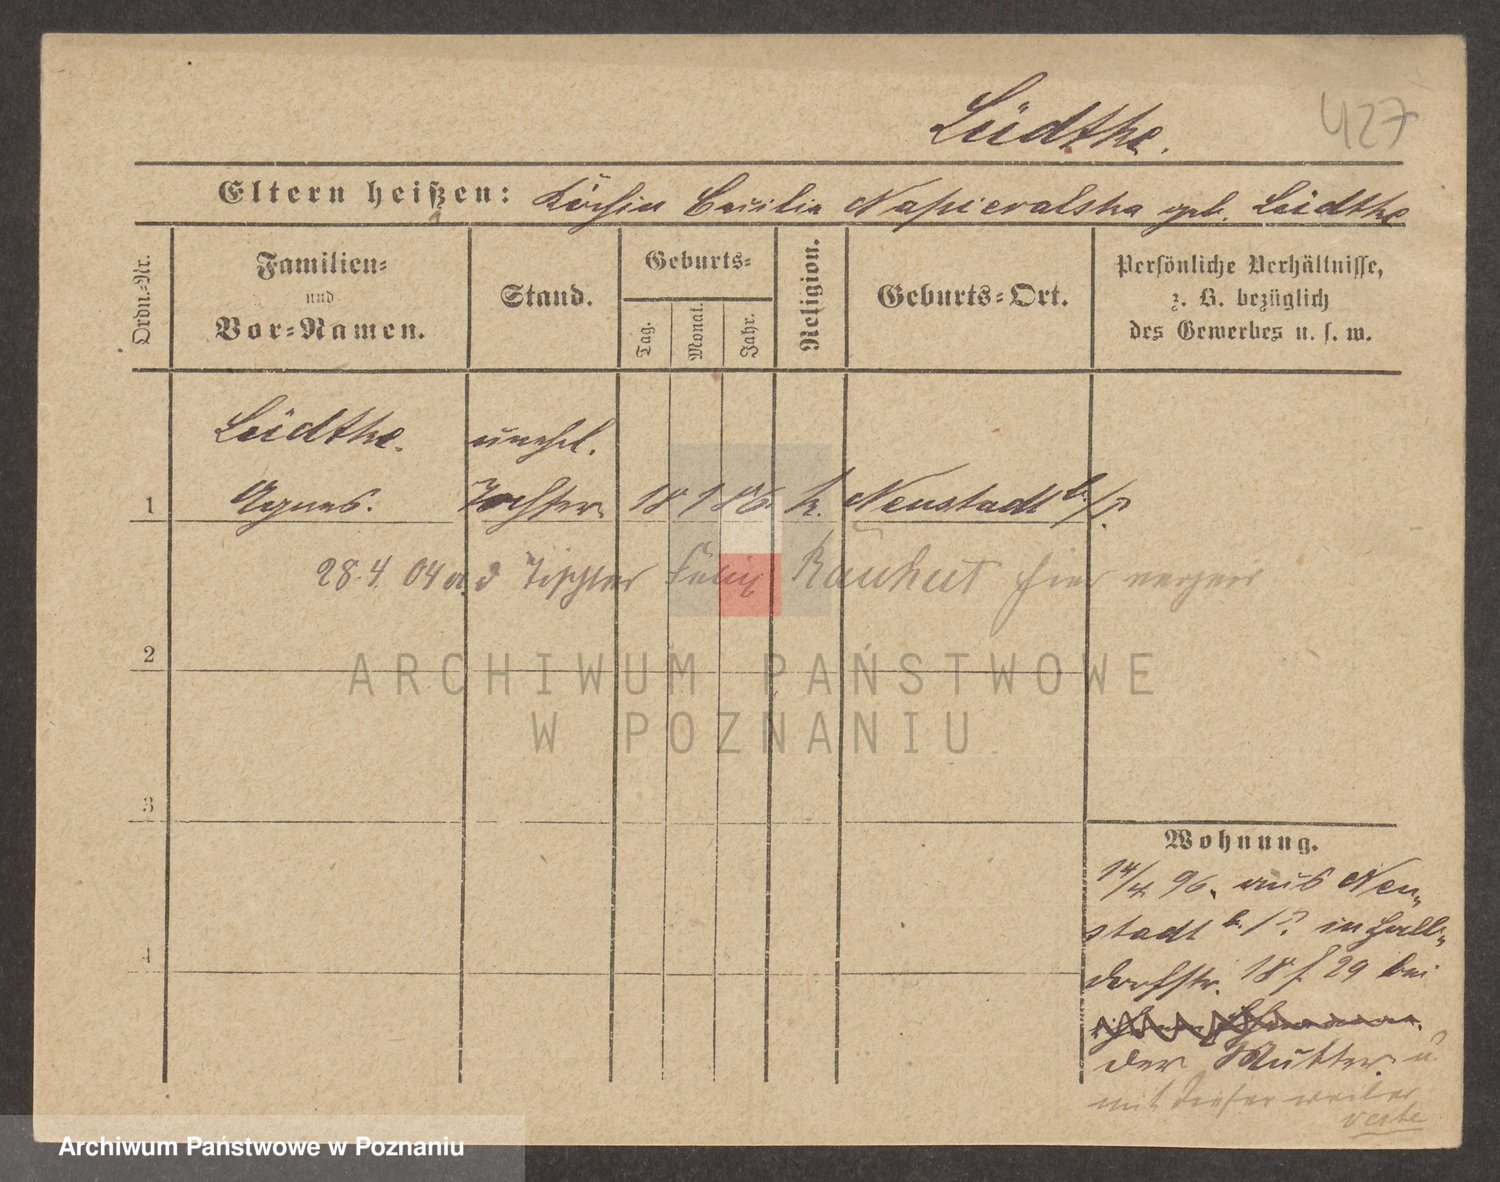 Lüdtke.
427
Eltern heißen: Köchin Cecilia Napieralska geb. Lüdtke
Ordn.-Nr.
Familien-
und
Vor-Namen.
Stand.
Geburts-
Tag.
Monat.
Jahr.
Religion.
Geburts-Ort.
Persönliche Verhältnisse,
z. B. bezüglich
des Gewerbes u. s. w.
Lüdtke. unehl.
1 Agnes. Tochter. 18 1 86 k. Neustadt b./P.
28.4.04 a.d Tischler Felix Rauhut hier
2
ARCHIWUM PAŃSTWOWE
W POZNANIU
3
Wohnung.
14/4. 96. aus Neu-
stadt b./P. in Hall-
dorfstr. 18 f 29 bei
4
der Mutter. u
mit dieser weiter
Archiwum Państwowe w Poznaniu